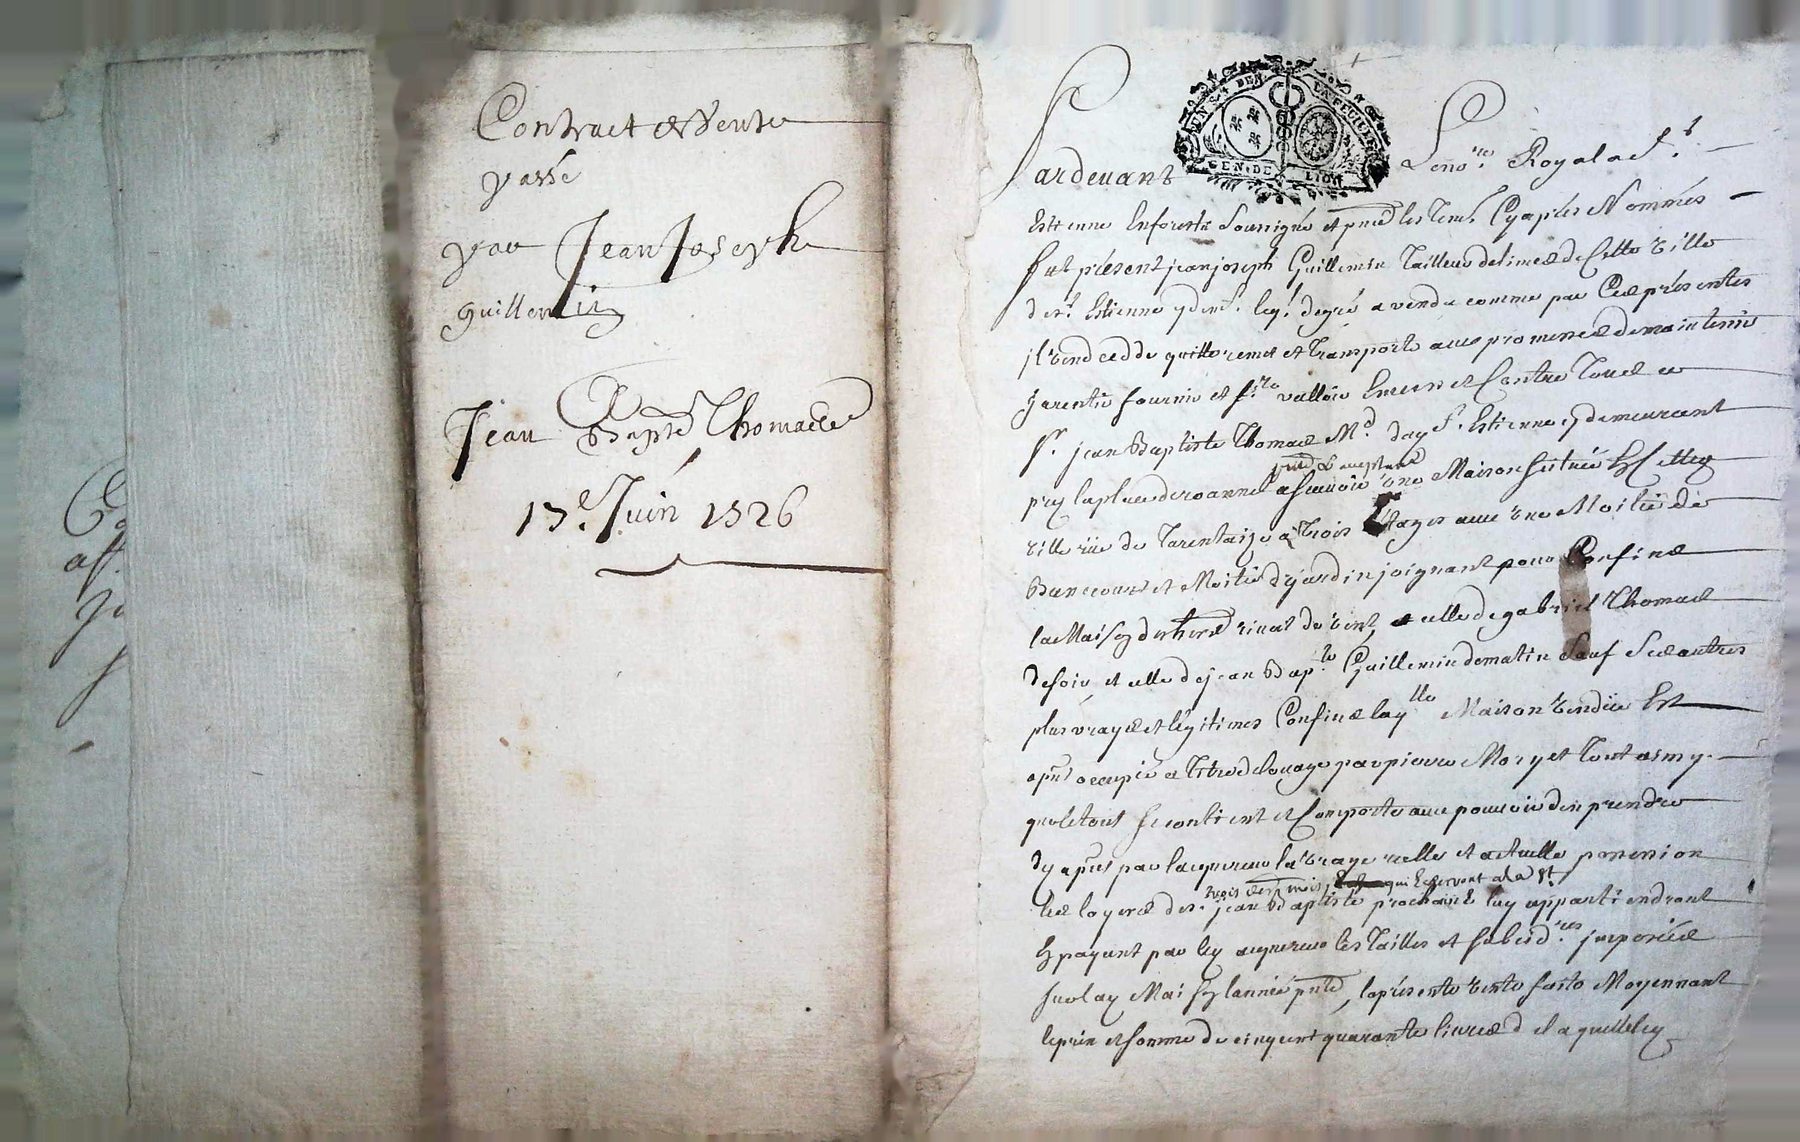 Contract de Vente
passé
par Jean Joseph
guillemin
Jean Bapte Thomas
17e Juin 1726
GEN. DE LION
Pardevant Le no.re Royal a St
Estienne En forests Soussigné et pnts les tem. Cy aprés Nommés
fut présent jean joseph Guillemin Tailleur de limes de Cette Ville
de st Estienne leq.l de gré a vendu comme par Ces présentes
jl vend cedde quitte remet et transporte avec promesses de maintenir
garentir fournir et f.re valloir Envers et Contre Tous a
Sr. jean Baptiste Thomas M.d du d. St. Estienne y demeurant
pnt & acceptant
prez la place de roanne ascavoir Une Maison scituée En Cette
Ville rüe de Tarentaize a trois Etages avec une Moitié de
Bassecour et Moitié de jardin joignant pour Confins
la Maison des de vent, celle de gabriel Thomas
de soir, et celle de jean Bap.te Guillemin de matin Sauf Ses autres
plus vrays et légitimes Confins laq.lle Maison vendüe Est
a pnt occupée a titre de louage par pierre Mory et Tout ainsy
que le tout se contient et Comporte avec pouvoir d'en prendre
dez a pnt par lacquereur la vraye reelle et actuelle possession
trois mois qui Eschervont a la St
les loyers de st. jean Baptiste prochaine luy appartiendront
En payant par led acquereur les Tailles et subsid.res jmposées
sur lad Maison lannée pnte, la présente vente faite Moyennant
le prix et somme de cinq cent quarante livres